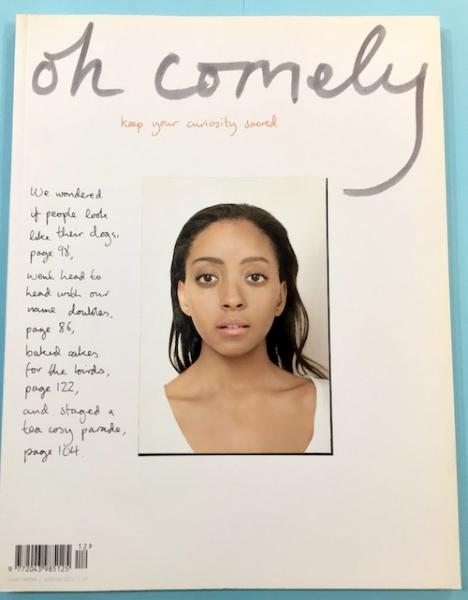 oh comely
keep your curiosity sacred
We wondered
if people look
like their dogs,
page 98,
went head to
head with our
name doubles,
page 86,
baked cakes
for the birds,
page 122,
and staged a
tea cosy parade,
page 104.
12>
9 772043 985125